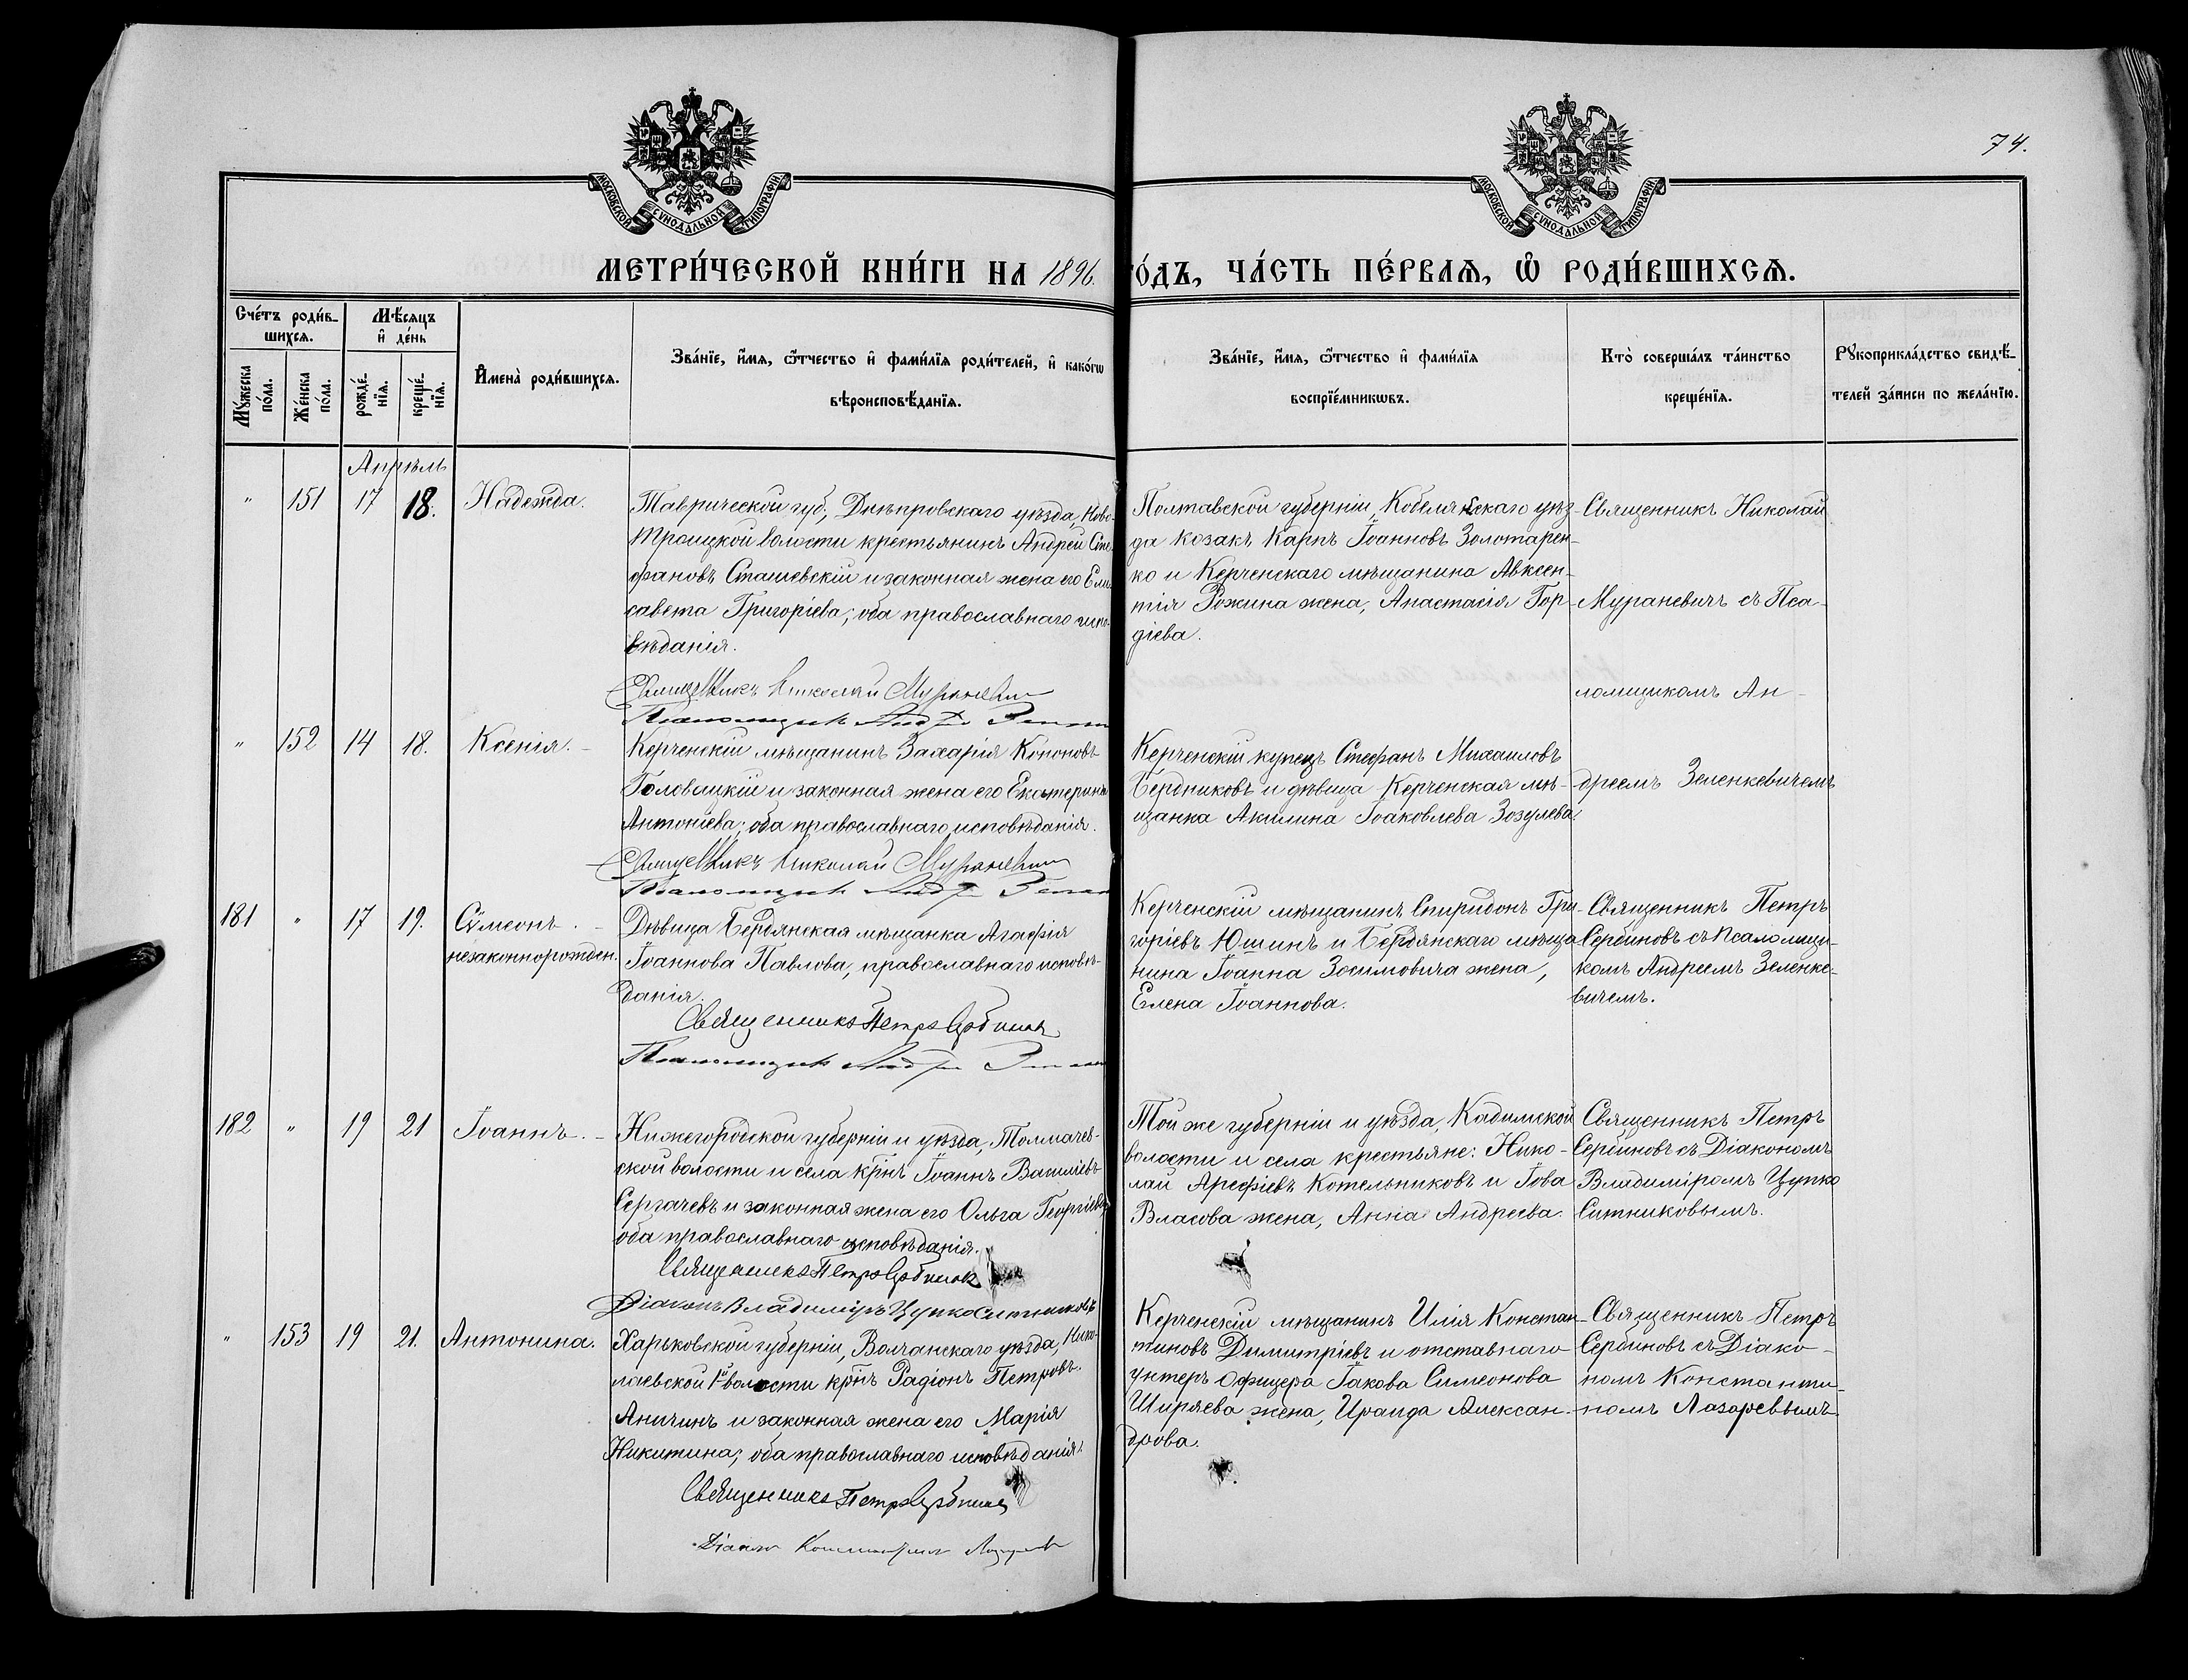 74.
МОСКОВСКОЙ СѴНОДАЛЬНОЙ ТИПОГРАФІИ
МОСКОВСКОЙ СѴНОДАЛЬНОЙ ТИПОГРАФІИ
МЕТРИ́ЧЕСКОЙ КНИ́ГИ НА 1896. ГО́ДЪ, ЧА́СТЬ ПЕ́РВАѦ, Ѽ РОДИ́ВШИХСѦ.
Сче́тъ роди́в-
шихсѧ.
Мꙋ́жеска по́ла.
Же́нска по́ла.
Мѣ́сѧцъ
и҆ де́нь
рожде́-
нїѧ.
креще́-
нїѧ.
И҆мена̀ роди́вшихсѧ.
Зва́нїе, и҆́мѧ, ѻ҆́тчество и҆ фами́лїѧ роди́телей, и҆ како́гѡ
вѣроисповѣ́данїѧ.
Зва́нїе, и҆́мѧ, ѻ҆́тчество и҆ фами́лїѧ
воспрїе́мникѡвъ.
Кто̀ соверша́лъ та́инство
креще́нїѧ.
Рꙋкоприкла́дство свидѣ́-
телей за́писи по жела́нїю.
Апрѣль
" 151 17 18. Надежда.
Таврической губ., Днѣпровскаго уѣзда, Ново-
Троицкой волости крестьянинъ Андрей Сте-
фановъ Сташевскій и законная жена его Ели-
савета Григоріева; оба православнаго испо-
вѣданія.
Священникъ Николай Мураневичъ
Псаломщикъ Андрей
Полтавской губерніи, Кобелякскаго уѣз-
да козакъ Карпъ Іоанновъ Золотарен-
ко и Керченскаго мѣщанина Авксен-
тія Рожина жена, Анастасія Гор-
діева.
Священникъ Николай
Мураневичъ съ Пса-
ломщикомъ Ан-
дреемъ Зеленкевичемъ
" 152 14 18. Ксенія.
Керченскій мѣщанинъ Захарія Кононовъ
Головлицкій и законная жена его Екатерина
Антоніева; оба православнаго исповѣданія.
Священникъ Николай Мураневичъ
Псаломщикъ Андрей
Керченскій купецъ Стефанъ Михаиловъ
Бердниковъ и дѣвица Керченская мѣ-
щанка Акилина Іоаковлева Зозулева
181 " 17 19. Сѵмеонъ.
незаконнорожден.
Дѣвица Бердянская мѣщанка Агафія
Іоаннова Павлова, православнаго исповѣ-
данія.
Священникъ Петръ Сербиновъ
Псаломщикъ Андрей
Керченскій мѣщанинъ Спиридонъ Гри-
горіевъ Юшинъ и Бердянскаго мѣща
нина Іоанна Зосимовича жена,
Елена Іоаннова.
Священникъ Петръ
Сербиновъ съ Псаломщи-
комъ Андреемъ Зеленке-
вичемъ.
182 " 19 21 Іоаннъ.
Нижегородской губерніи и уѣзда, Толмачев-
ской волости и села кр̃нъ Іоаннъ Василіевъ
Сергачевъ и законная жена его Ольга Георгіева
оба православнаго исповѣданія.
Священникъ Петръ Сербиновъ
Діаконъ Владиміръ Цупко Ситниковъ
Той же губерніи и уѣзда, Кадимской
волости и села крестьяне: Нико-
лай Арефіевъ Котельниковъ и Іова
Власова жена, Анна Андреева.
Священникъ Петръ
Сербиновъ съ Діакономъ
Владиміромъ Цупко
Ситниковымъ.
" 153 19 21. Антонина.
Харьковской губерніи, Волчанскаго уѣзда, Нико-
лаевской 1й волости кр̃нъ Радіонъ Петровъ
Аничинъ и законная жена его Марія
Никитина; оба православнаго исповѣданія.
Священникъ Петръ Сербиновъ
Діаконъ Константинъ Лазаревъ
Керченскій мѣщанинъ Илія Констан-
тиновъ Димитріевъ и отставнаго
унтеръ офицера Іакова Симеонова
Ширяева жена, Ираида Алексан-
дрова.
Священникъ Петръ
Сербиновъ съ Діако-
номъ Константи-
номъ Лазаревымъ.